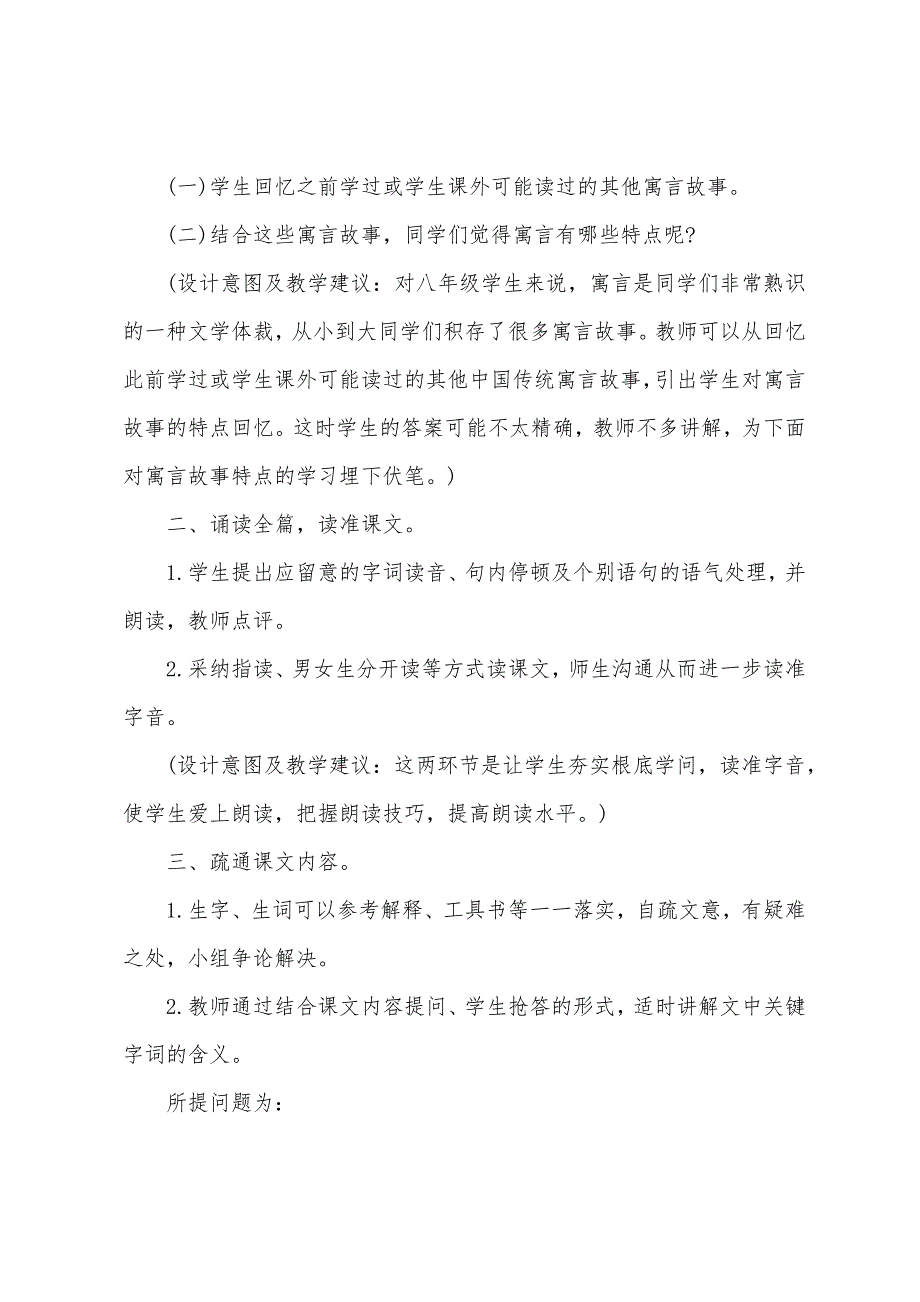 (一)学生回忆之前学过或学生课外可能读过的其他寓言故事。
(二)结合这些寓言故事，同学们觉得寓言有哪些特点呢?
(设计意图及教学建议：对八年级学生来说，寓言是同学们非常熟识
的一种文学体裁，从小到大同学们积存了很多寓言故事。教师可以从回忆
此前学过或学生课外可能读过的其他中国传统寓言故事，引出学生对寓言
故事的特点回忆。这时学生的答案可能不太精确，教师不多讲解，为下面
对寓言故事特点的学习埋下伏笔。)
二、诵读全篇，读准课文。
1.学生提出应留意的字词读音、句内停顿及个别语句的语气处理，并
朗读，教师点评。
2.采纳指读、男女生分开读等方式读课文，师生沟通从而进一步读准
字音。
(设计意图及教学建议：这两环节是让学生夯实根底学问，读准字音，
使学生爱上朗读，把握朗读技巧，提高朗读水平。)
三、疏通课文内容。
1.生字、生词可以参考解释、工具书等一一落实，自疏文意，有疑难
之处，小组争论解决。
2.教师通过结合课文内容提问、学生抢答的形式，适时讲解文中关键
字词的含义。
所提问题为：